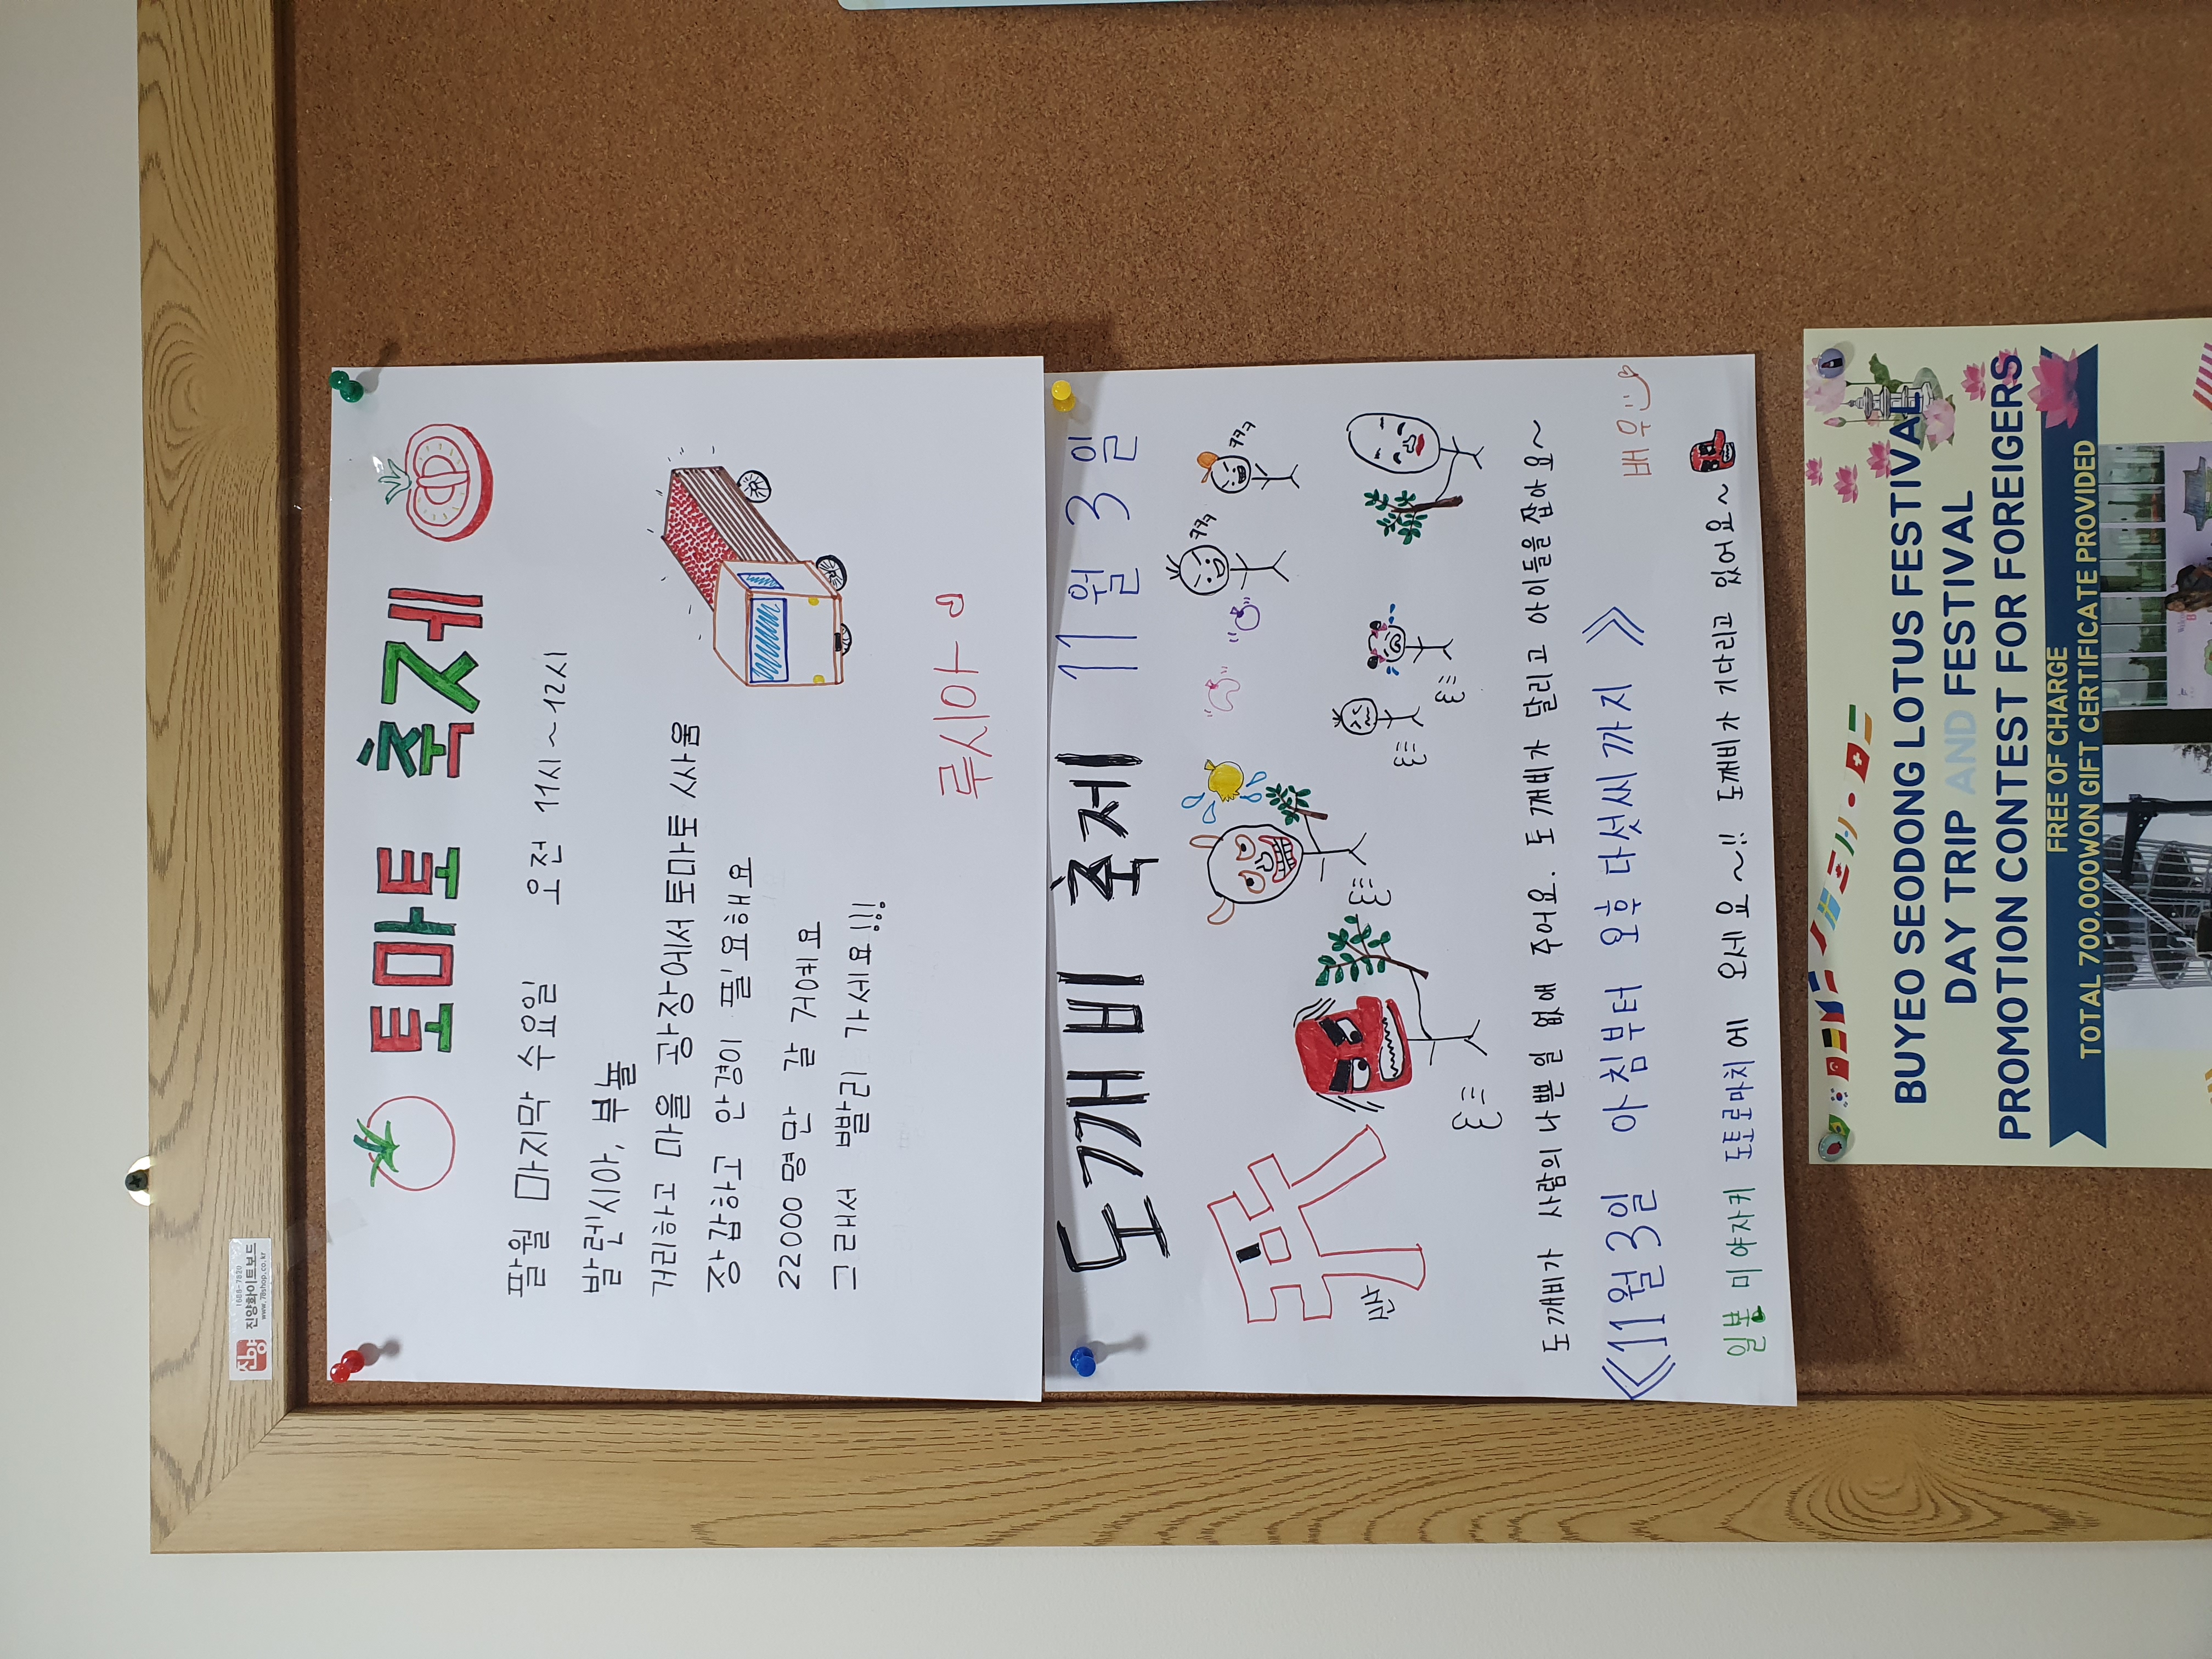 1688-7820
진양화이트보드
www.78shop.co.kr
토마토 축제
팔월 마지막 수요일 오전 11시~12시
발렌시아, 부뇰
거리하고 마을 광장에서 토마토 싸움
장갑하고 안경이 필요해요
22000명만 갈 거예요
그래서 빨리 가세요!!!
루시아
도깨비 축제 11월 3일
ㅋㅋㅋ
ㅋㅋㅋ
신사
도깨비가 사람의 나쁜 일 없애 주어요. 도깨비가 달리고 아이들을 잡아요~
《11월 3일 아침부터 오후 다섯씨까지》
배우
일본 미야자키 도토로마치에 오세요~!! 도깨비가 기다리고 있어요~
BUYEO SEODONG LOTUS FESTIVAL
DAY TRIP AND FESTIVAL
PROMOTION CONTEST FOR FOREIGERS
FREE OF CHARGE
TOTAL 700,000WON GIFT CERTIFICATE PROVIDED